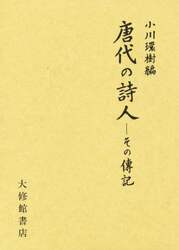 小川環樹編
唐代の詩人
—その傳記
大修館書店